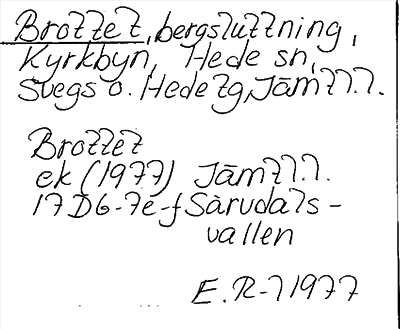 Brottet, bergsluttning,
Kyrkbyn, Hede sn,
Svegs o. Hede tg, Jämtl.l.
Brottet
ek (1977) Jämtl.l.
17 D6-7e-f Särvdals-
vallen
E. R-l 1977